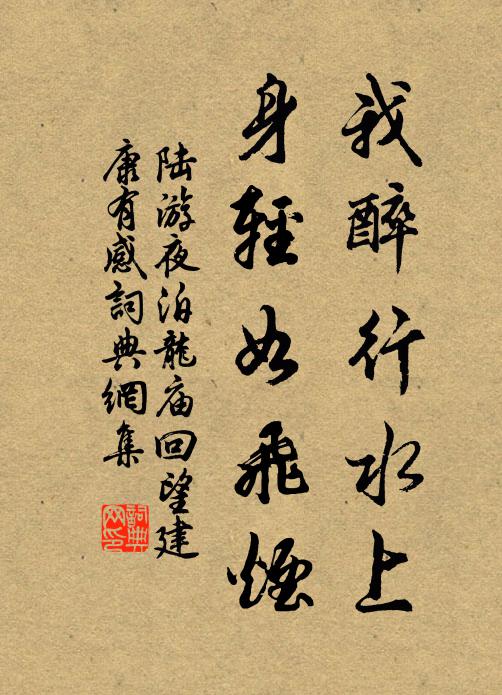 我醉行水上
身輕如飛煙
陆游夜泊龍庙回望建
康有感詞典網集
詞典
网印